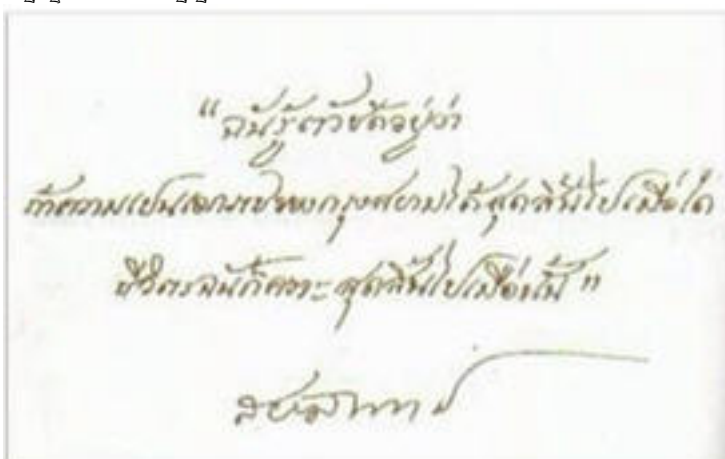 "ฉันรู้ตัวชัดอยู่ว่า
ถ้าความเป็นเอกราชของกรุงสยามได้สุดสิ้นไปเมื่อใด
ชีวิตรฉันก็คงจะสุดสิ้นไปเมื่อนั้น"